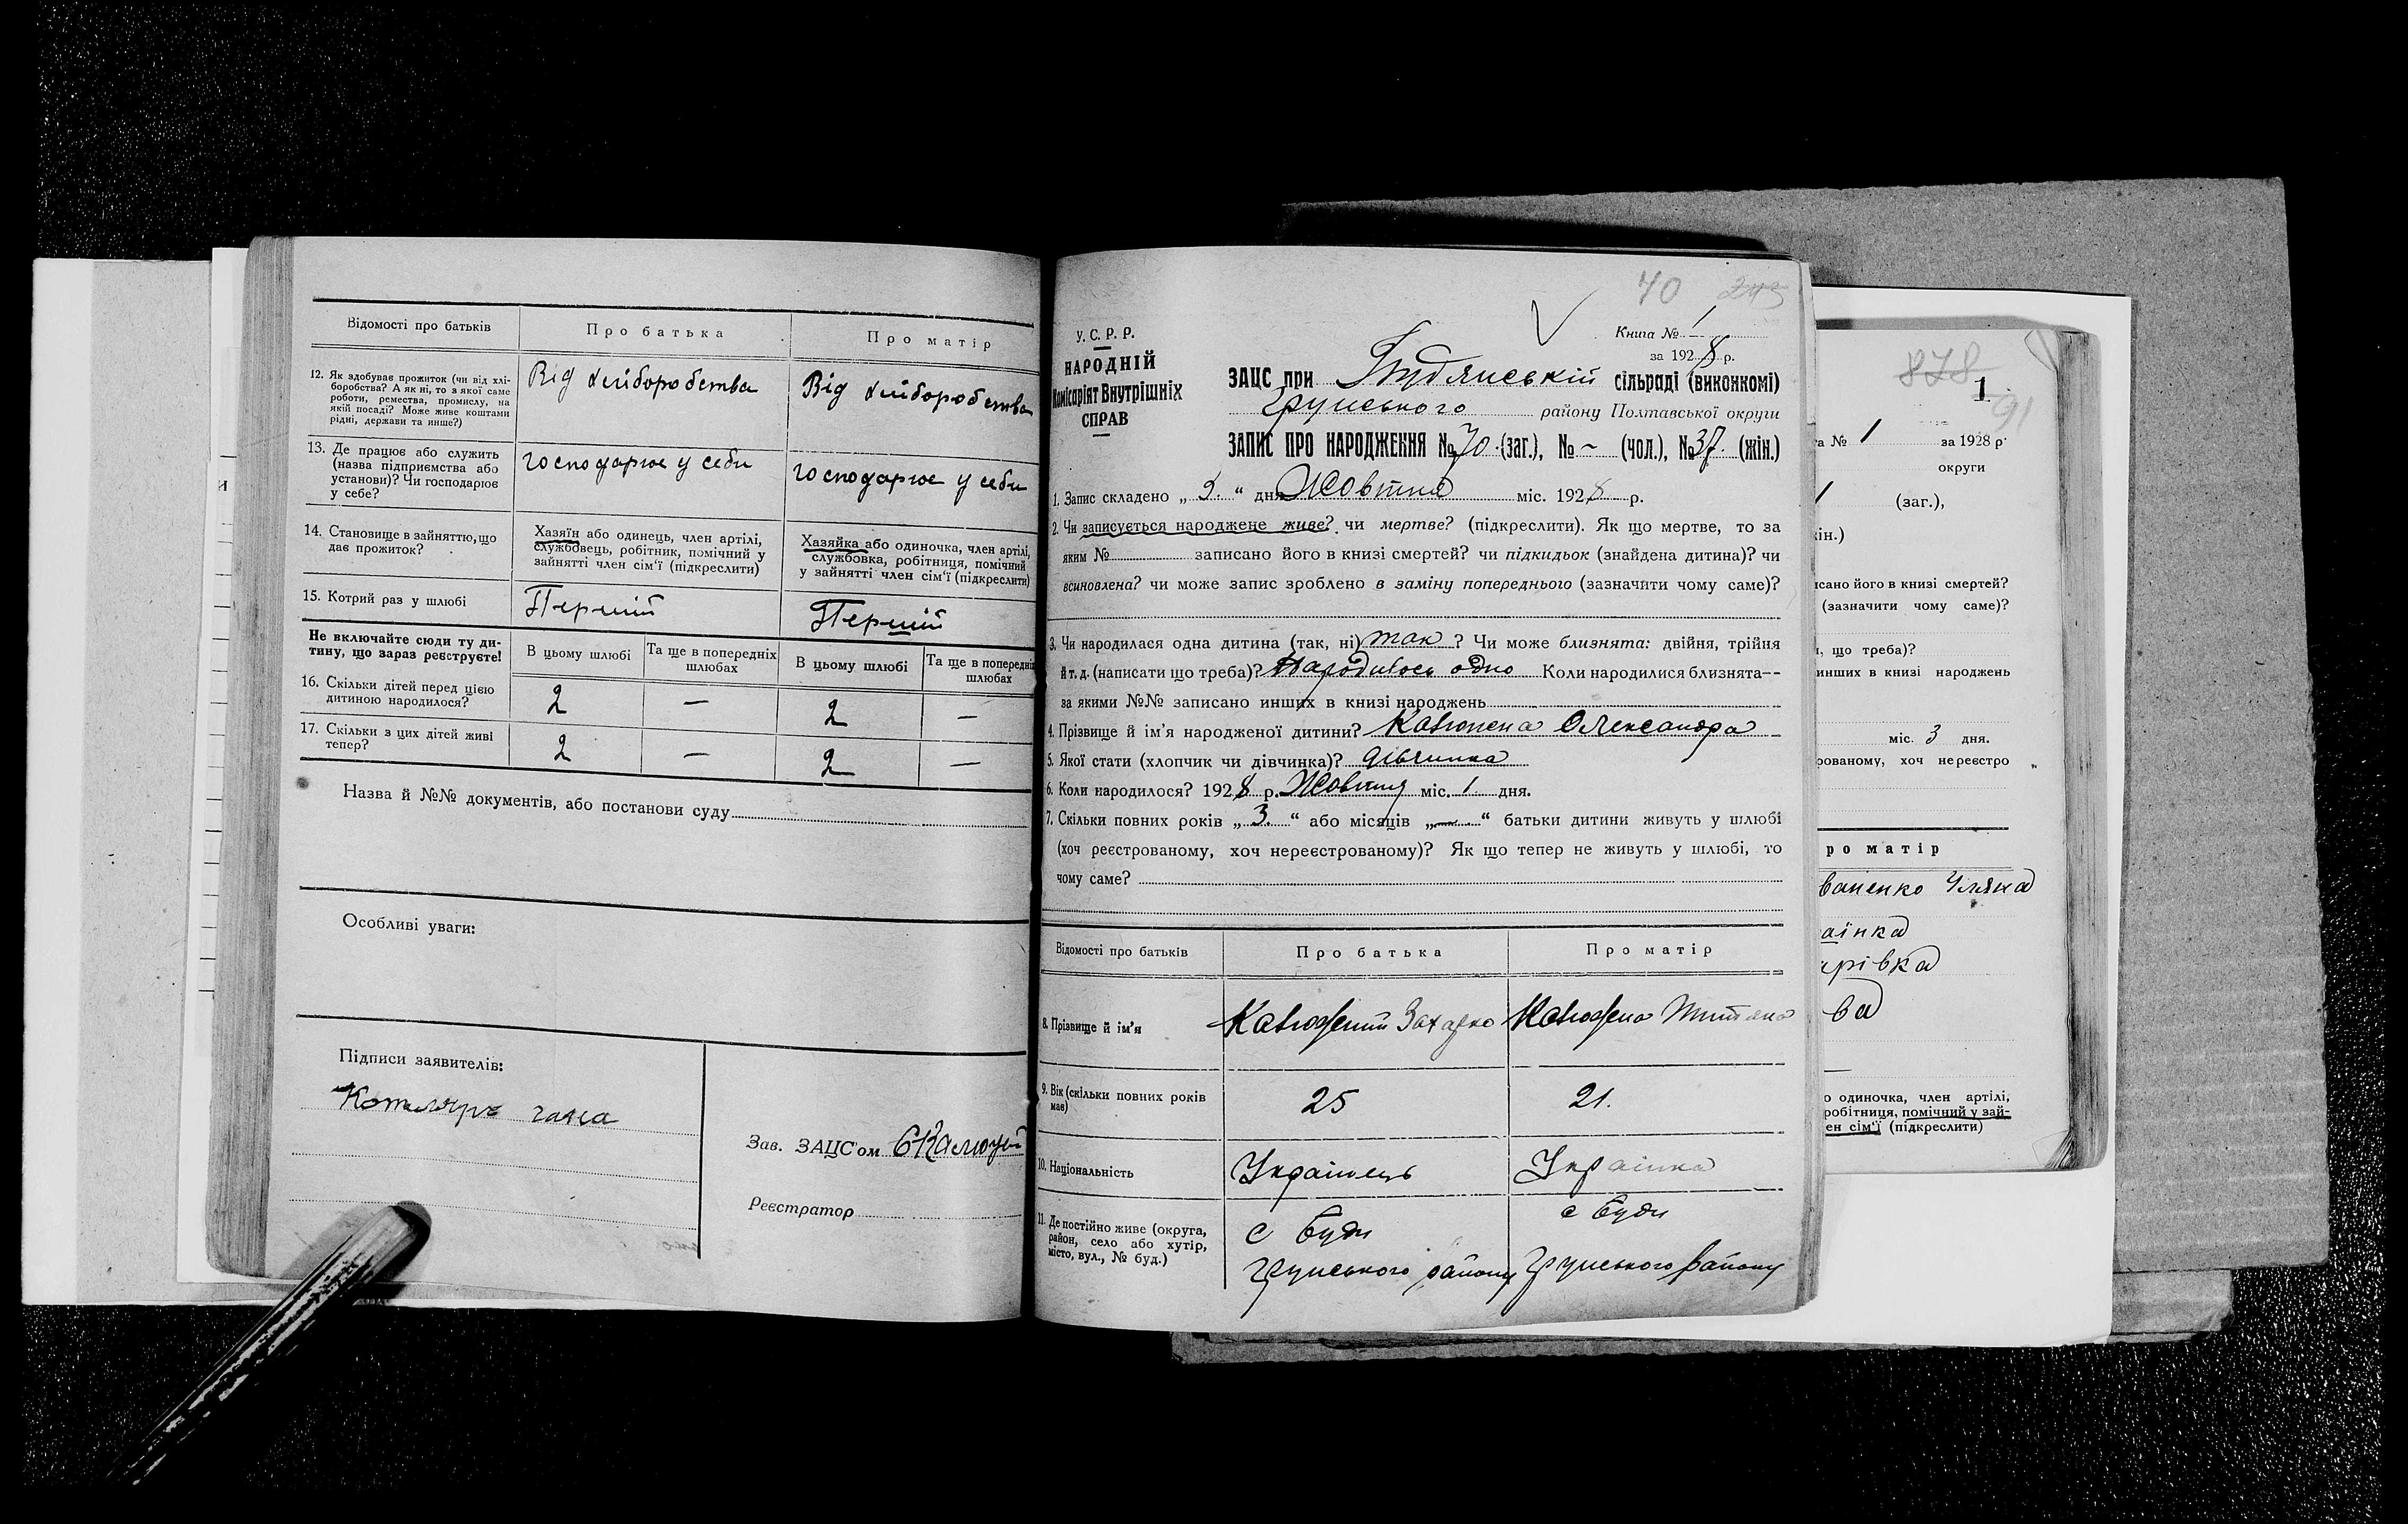 Відомості про батьків
Про батька
Про матір
12. Як здобуває прожиток (чи від хлі-
боробства? А як ні, то з якої саме
роботи, ремества, промислу, на
якій посаді? Може живе коштами
рідні, держави та инше?)
Від хліборобства
Від хліборобства
13. Де працює або служить
(назва підприємства або
установи)? Чи господарює
у себе?
господарює у себи
господарює у себи
14. Становище в зайняттю, що
дає прожиток?
Хазяїн або одинець, член артілі,
службовець, робітник, помічний у
зайнятті член сім'ї (підкреслити)
Хазяйка або одиночка, член артілі,
службовка, робітниця, помічний
у зайнятті член сім'ї (підкреслити)
15. Котрий раз у шлюбі
Перший
Перший
Не включайте сюди ту ди-
тину, що зараз реєструєте!
В цьому шлюбі
Та ще в попередніх
шлюбах
В цьому шлюбі
Та ще в попередніх
шлюбах
16. Скільки дітей перед цією
дитиною народилося?
2 — 2 —
17. Скільки з цих дітей живі
тепер?
2 — 2 —
Назва й №№ документів, або постанови суду
Особливі уваги:
Підписи заявителів:
Зав. ЗАЦС'ом
Реєстратор
40 243
У. С. Р. Р.
НАРОДНІЙ
Комісаріят Внутрішніх
СПРАВ
Книга № 1
за 1928 р.
ЗАЦС при сільраді (виконкомі)
Грунського району Полтавської округи
ЗАПИС ПРО НАРОДЖЕННЯ № 70 (заг.), № ~ (чол.), № 37. (жін.)
1. Запис складено „ 3. “ дня Жовтня міс. 1928 р.
2. Чи записується народжене живе? чи мертве? (підкреслити). Як що мертве, то за
яким № записано його в книзі смертей? чи підкидьок (знайдена дитина)? чи
всиновлена? чи може запис зроблено в заміну попереднього (зазначити чому саме)?
3. Чи народилася одна дитина (так, ні) так? Чи може близнята: двійня, трійня
й т. д. (написати що треба)? Народилось одно Коли народилися близнята—
за якими №№ записано инших в книзі народжень
4. Прізвище й ім'я народженої дитини? Олександра
5. Якої стати (хлопчик чи дівчинка)? дівчинка
6. Коли народилося? 1928 р. Жовтня міс. 1 дня.
7. Скільки повних років „ 3. “ або місяців „ — “ батьки дитини живуть у шлюбі
(хоч реєстрованому, хоч нереєстрованому)? Як що тепер не живуть у шлюбі, то
чому саме?
Відомості про батьків
Про батька
Про матір
8. Прізвище й ім'я
Захарко
9. Вік (скільки повних років
має)
25
21.
10. Національність
Українець
Українка
11. Де постійно живе (округа,
район, село або хутір,
місто, вул., № буд.)
с Буди
Грунського району
с Буди
Грунського району
878
1
91
а № 1 за 1928 р.
округи
(заг.),
ін.)
исано його в книзі смертей?
(зазначити чому саме)?
, що треба)?
инших в книзі народжень
міс. 3 дня.
рованому, хоч нереєстро
ро матір
ваненко Уляна
аїнка
арівка
ва
о одиночка, член артілі,
робітниця, помічний у зай-
ен сім'ї (підкреслити)